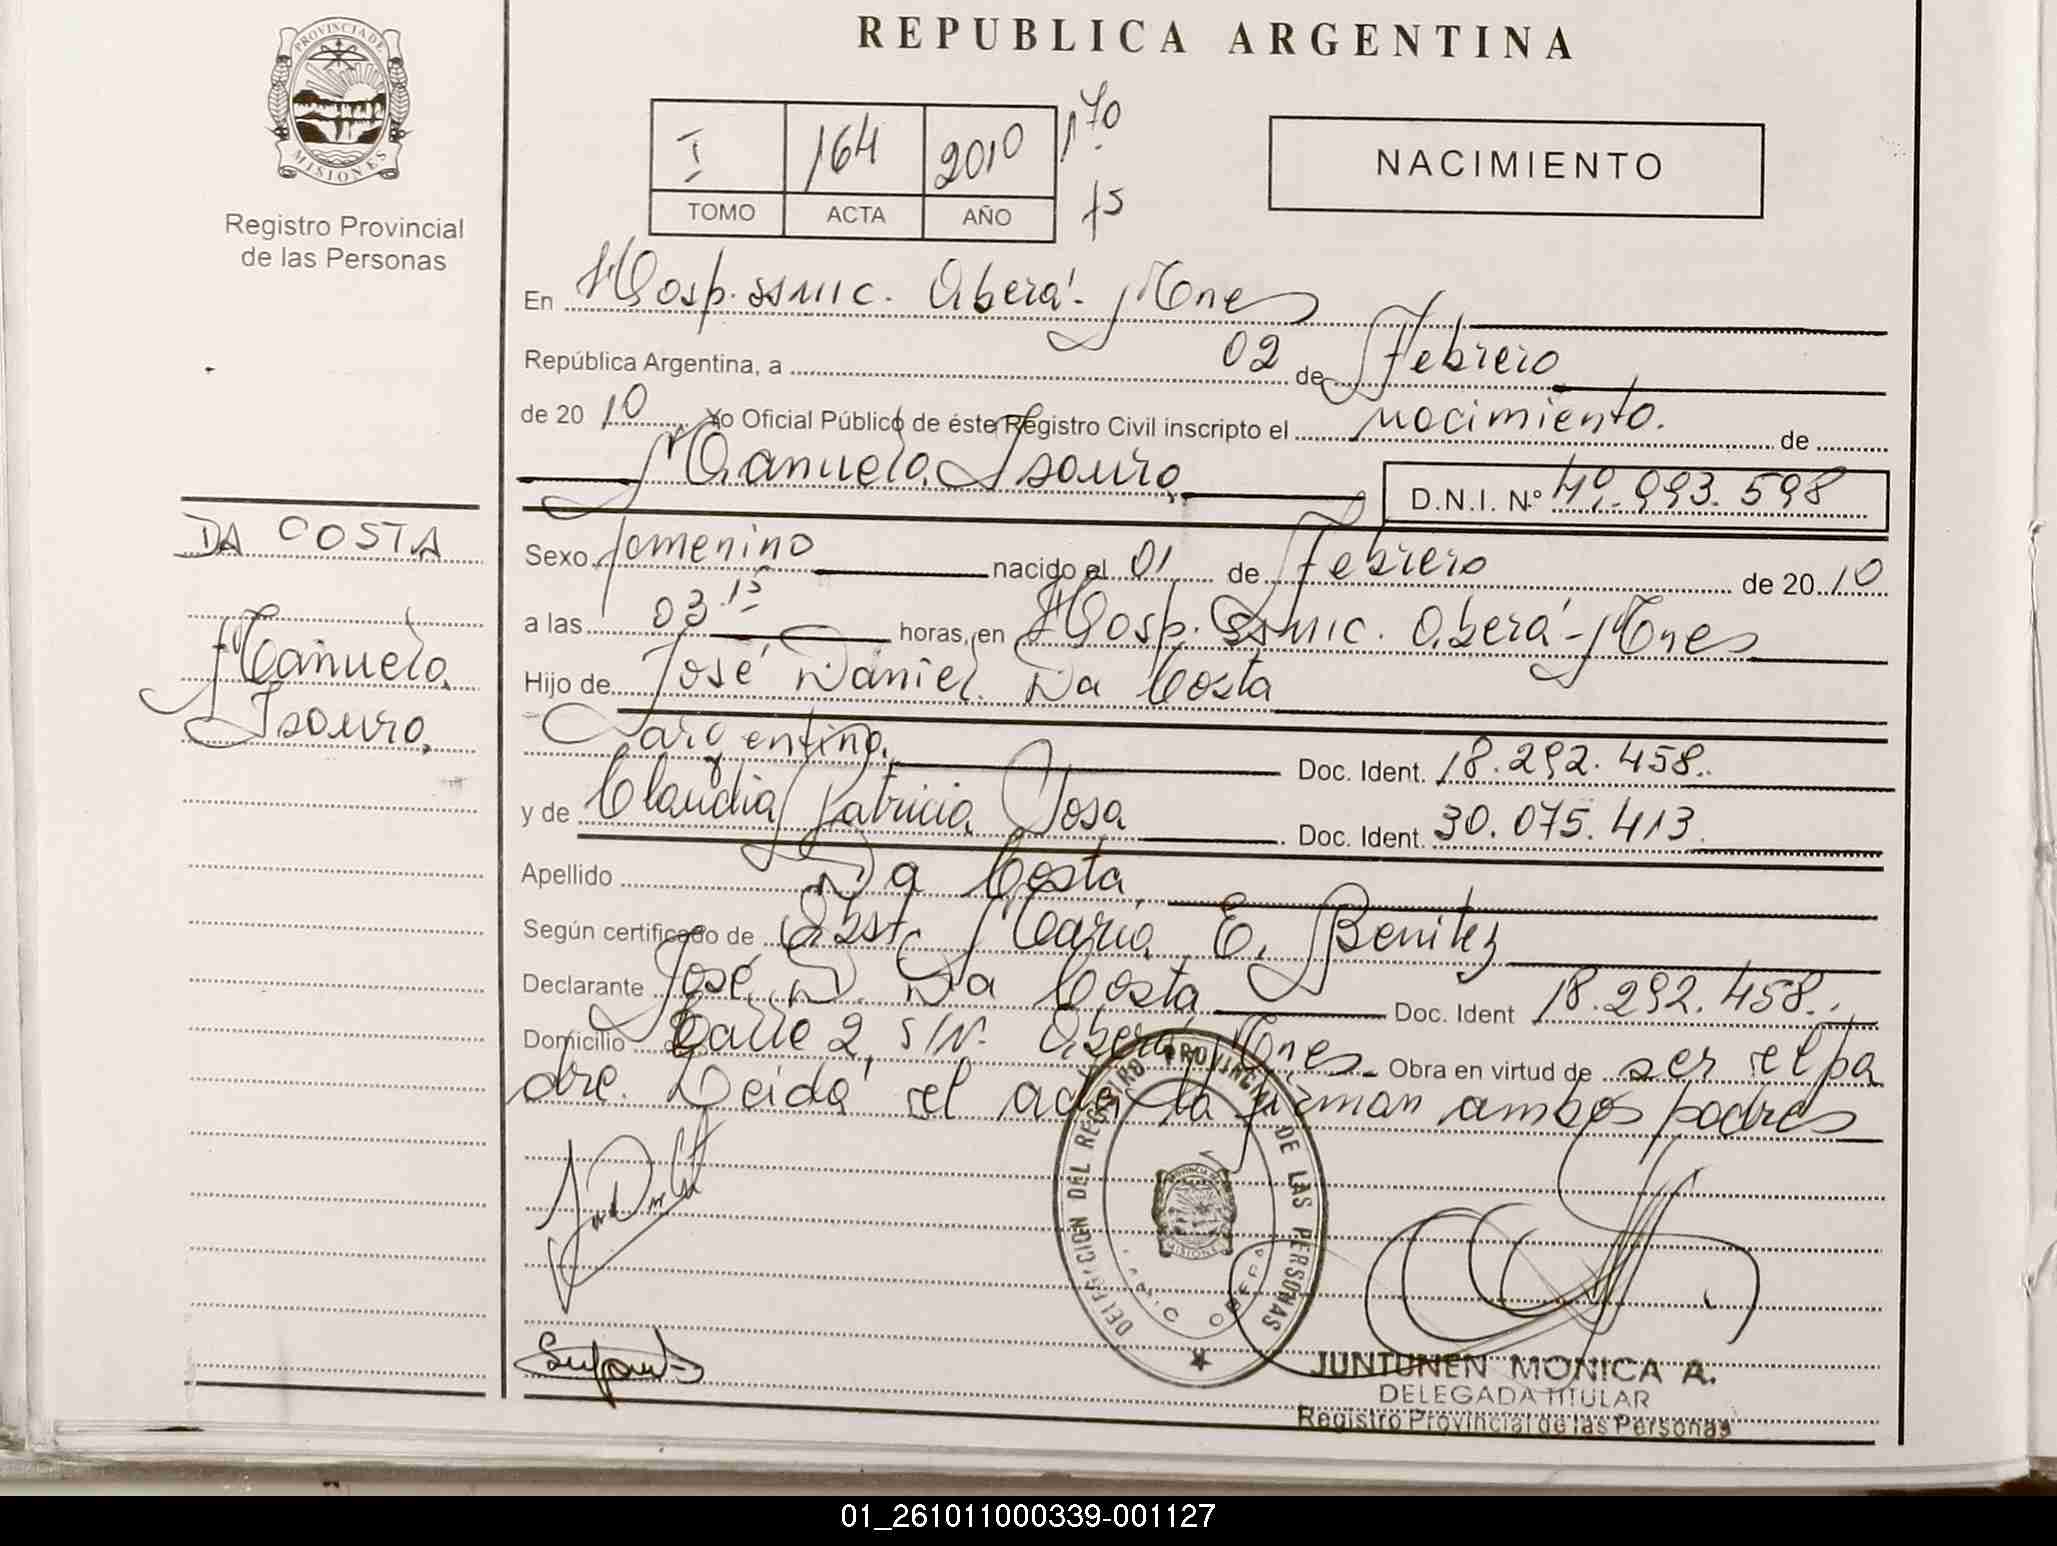 REPUBLICA ARGENTINA
PROVINCIA DE
MISIONES
Registro Provincial
de las Personas
I 164 2010 170
TOMO ACTA AÑO 15
NACIMIENTO
En Hosp. SSMIC. Oberá - Mnes
República Argentina, a 02 de Febrero
de 20 10 Yo Oficial Público de éste Registro Civil inscripto el nacimiento. de
Manuela Isaura D.N.I. Nº 49.993.598
DA COSTA
Manuela
Isaura
Sexo femenino nacido el 01 de Febrero de 20 10
a las 03.15 horas, en Hosp. SSMIC. Oberá - Mnes
Hijo de José Daniel Da Costa
argentino. Doc. Ident. 18.292.458.
y de Claudia Patricia Sosa Doc. Ident. 30.075.413
Apellido Da Costa
Según certificado de Obst. María E. Benitez
Declarante José D. Da Costa Doc. Ident 18.292.458.
Domicilio Calle 2, S/N. Oberá Mnes Obra en virtud de ser el pa
dre. Leida el acta la firman ambos padres
DELEGACION DEL REGISTRO PROVINCIAL DE LAS PERSONAS
PROVINCIA DE
MISIONES
OBERA
JUNTUNEN MONICA A.
DELEGADA TITULAR
Registro Provincial de las Personas
01_261011000339-001127